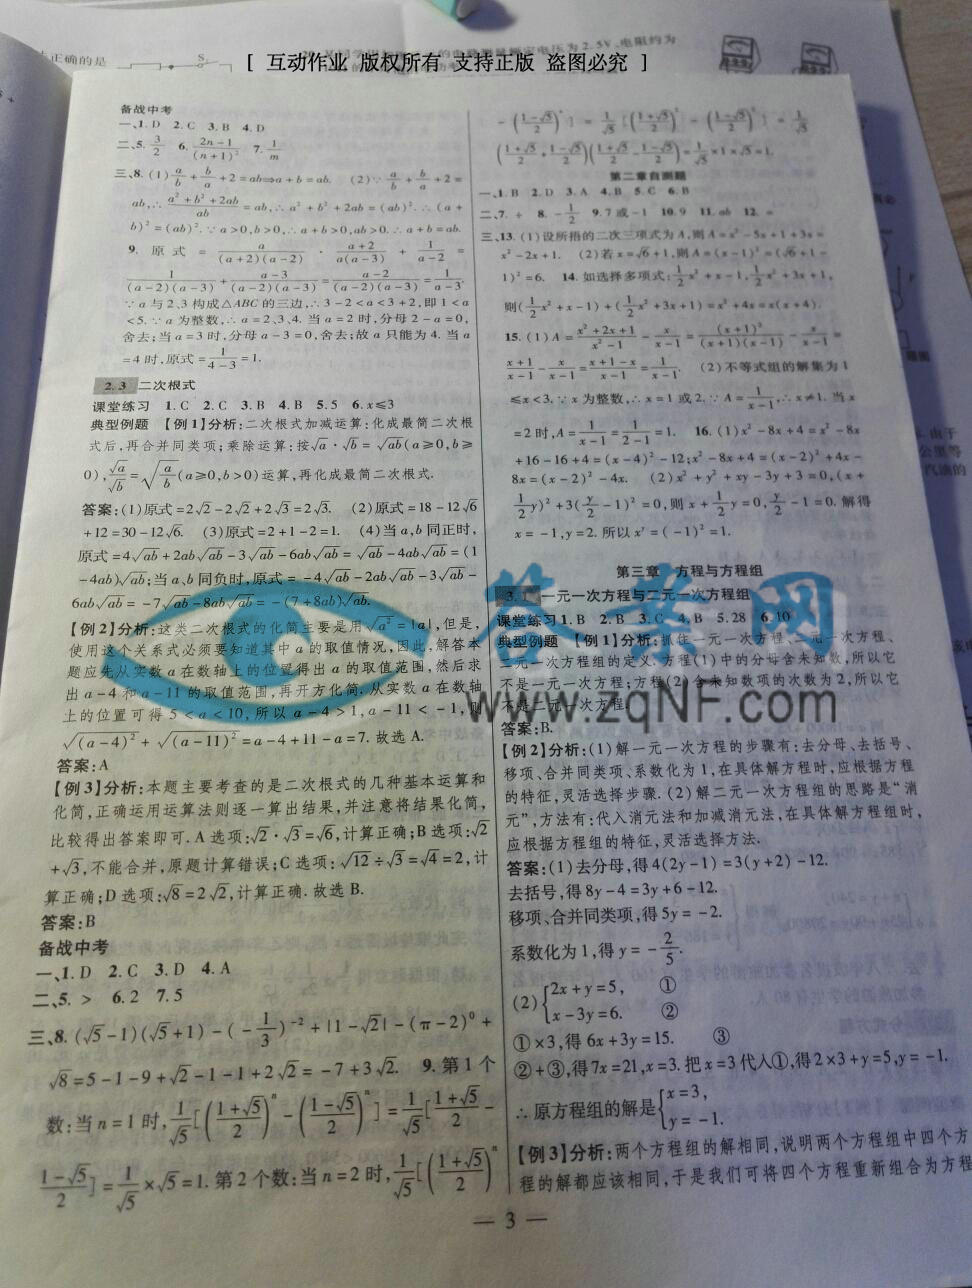 [ 互动作业 版权所有 支持正版 盗图必究 ]
正确的是
备战中考
一、1. D 2. C 3. B 4. D
二、5. 3/2 6. (2n-1)/(n+1)² 7. 1/m
三、8. (1) a/b + b/a + 2 = ab⇒a+b=ab. (2)∵ a/b + b/a + 2 =
ab,∴ (a²+b²+2ab)/ab = ab,∴a²+b²+2ab=(ab)².∴(a+
b)²=(ab)².∵a>0,b>0,∴a+b>0,ab>0.∴a+b=ab.
9. 原式 = a/((a+2)(a-2)) · (a+2)/(a(a-3)) + 1/(a-2) =
1/((a-2)(a-3)) + (a-3)/((a-2)(a-3)) = (a-2)/((a-2)(a-3)) = 1/(a-3).
∵a与2、3构成△ABC的三边,∴3-2<a<3+2,即1<a
<5.∵a为整数,∴a=2、3、4.当a=2时,分母2-a=0,
舍去;当a=3时,分母a-3=0,舍去;故a只能为4.当a
=4时,原式=1/(4-3)=1.
2.3 二次根式
课堂练习 1. C 2. C 3. B 4. B 5. 5 6. x≤3
典型例题 【例1】分析:二次根式加减运算:化成最简二次根
式后,再合并同类项;乘除运算:按√a·√b=√ab(a≥0,b≥
0),√a/√b=√(a/b)(a≥0,b>0)运算,再化成最简二次根式.
答案:(1)原式=2√2-2√2+2√3=2√3. (2)原式=18-12√6
+12=30-12√6. (3)原式=2+1-2=1. (4)当a,b同正时,
原式=4√ab+2ab√ab-3√ab-6ab√ab=√ab-4ab√ab=(1
-4ab)√ab;当a、b同负时,原式=-4√ab-2ab√ab-3√ab-
6ab√ab=-7√ab-8ab√ab=-(7+8ab)√ab.
【例2】分析:这类二次根式的化简主要是用√a²=|a|,但是,
使用这个关系式必须要知道其中a的取值情况,因此,解答本
题应先从实数a在数轴上的位置得出a的取值范围,然后求
出a-4和a-11的取值范围,再开方化简.从实数a在数轴
上的位置可得5<a<10,所以a-4>1,a-11<-1,则
√(a-4)²+√(a-11)²=a-4+11-a=7.故选A.
答案:A
【例3】分析:本题主要考查的是二次根式的几种基本运算和
化简,正确运用运算法则逐一算出结果,并注意将结果化简,
比较得出答案即可.A选项:√2·√3=√6,计算正确;B选项:√2
+√3,不能合并,原题计算错误;C选项:√12÷√3=√4=2,计
算正确;D选项:√8=2√2,计算正确.故选B.
答案:B
备战中考
一、1. D 2. C 3. D 4. A
二、5. > 6. 2 7. 5
三、8. (√5-1)(√5+1)-(-1/3)⁻²+|1-√2|-(π-2)⁰+
√8=5-1-9+√2-1-1+2√2=-7+3√2. 9. 第1个
数:当n=1时,1/√5[((1+√5)/2)ⁿ-((1-√5)/2)ⁿ]=1/√5[(1+√5)/2-
(1-√5)/2]=1/√5×√5=1.第2个数:当n=2时,1/√5[((1+√5)/2)ⁿ
-((1-√5)/2)ⁿ]=1/√5[((1+√5)/2)²-((1-√5)/2)²]=1/√5
((1+√5)/2+(1-√5)/2)((1+√5)/2-(1-√5)/2)=1/√5×1×√5=1.
第二章自测题
一、1. B 2. D 3. A 4. B 5. C 6. B
二、7. ÷ 8. -1/2 9. 7或-1 10. 9 11. ab 12. =
三、13. (1)设所捂的二次三项式为A,则A=x²-5x+1+3x=
x²-2x+1. (2)若x=√6+1,则A=(x-1)²=(√6+1-
1)²=6. 14. 如选择多项式:1/2x²+x-1,1/2x²+3x+1,
则(1/2x²+x-1)+(1/2x²+3x+1)=x²+4x=x(x+4).
15. (1)A=(x²+2x+1)/(x²-1)-x/(x-1)=(x+1)²/((x+1)(x-1))-x/(x-1)=
(x+1)/(x-1)-x/(x-1)=(x+1-x)/(x-1)=1/(x-1). (2)不等式组的解集为1
≤x<3.∵x为整数,∴x=1或2.∵A=1/(x-1),∴x≠1.当x
=2时,A=1/(x-1)=1/(2-1)=1. 16. (1)x²-8x+4=x²-8x
+16-16+4=(x-4)²-12;x²-8x+4=(x-2)²+4x-
8x=(x-2)²-4x. (2)x²+y²+xy-3y+3=0,(x+
1/2y)²+3(y/2-1)²=0,则x+1/2y=0,y/2-1=0.解得
x=-1,y=2.所以xʸ=(-1)²=1.
第三章 方程与方程组
3.1 一元一次方程与二元一次方程组
课堂练习 1. B 2. B 3. C 4. B 5. 28 6. 10
典型例题 【例1】分析:抓住一元一次方程、二元一次方程、
二元一次方程组的定义.方程(1)中的分母含未知数,所以它
不是一元一次方程;方程(2)含未知数项的次数为2,所以它
不是二元一次方程.
答案:B.
【例2】分析:(1)解一元一次方程的步骤有:去分母、去括号、
移项、合并同类项、系数化为1,在具体解方程时,应根据方程
的特征,灵活选择步骤.(2)解二元一次方程组的思路是“消
元”,方法有:代入消元法和加减消元法,在具体解方程组时,
应根据方程组的特征,灵活选择方法.
答案:(1)去分母,得4(2y-1)=3(y+2)-12.
去括号,得8y-4=3y+6-12.
移项、合并同类项,得5y=-2.
系数化为1,得y=-2/5.
(2){2x+y=5, ①
x-3y=6. ②
①×3,得6x+3y=15. ③
②+③,得7x=21,x=3.把x=3代入①,得2×3+y=5,y=-1.
∴原方程组的解是{x=3,
y=-1.
【例3】分析:两个方程组的解相同,说明两个方程组中四个方
程的解都应该相同,于是我们可将四个方程重新组合为方程
— 3 —
答案网
www.zqNF.com
由于
公里等
汽油的